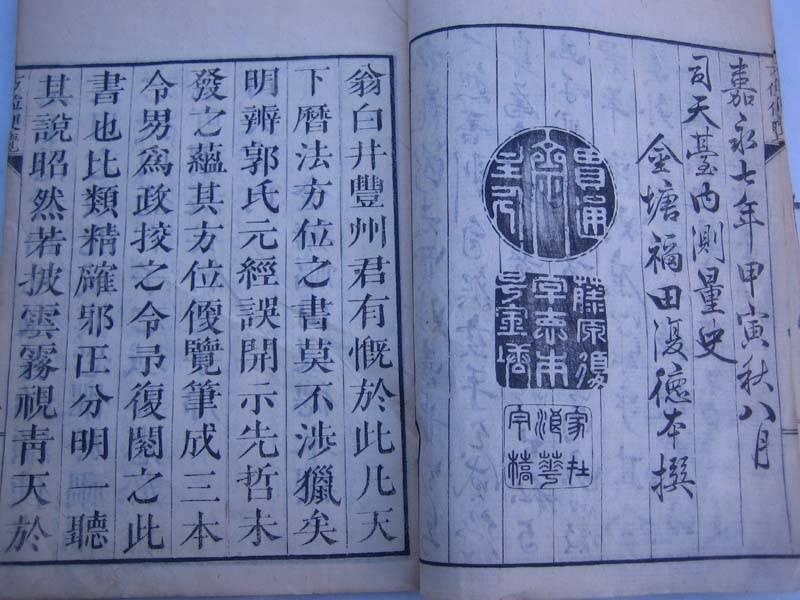 嘉永七年甲寅秋八月
司天臺内測量史
金塘福田復德本撰
貫通
藤原復
字泰甫
号金塘
家在
浪華
字橋
翁白井豐州君有慨於此凡天
下曆法方位之書莫不涉獵矣
明辨郭氏元經誤開示先哲未
發之蘊其方位便覽筆成三本
令男爲政挍之令予復閱之此
書也比類精確邪正分明一聽
其說昭然若披雲霧視青天於
方位便覽